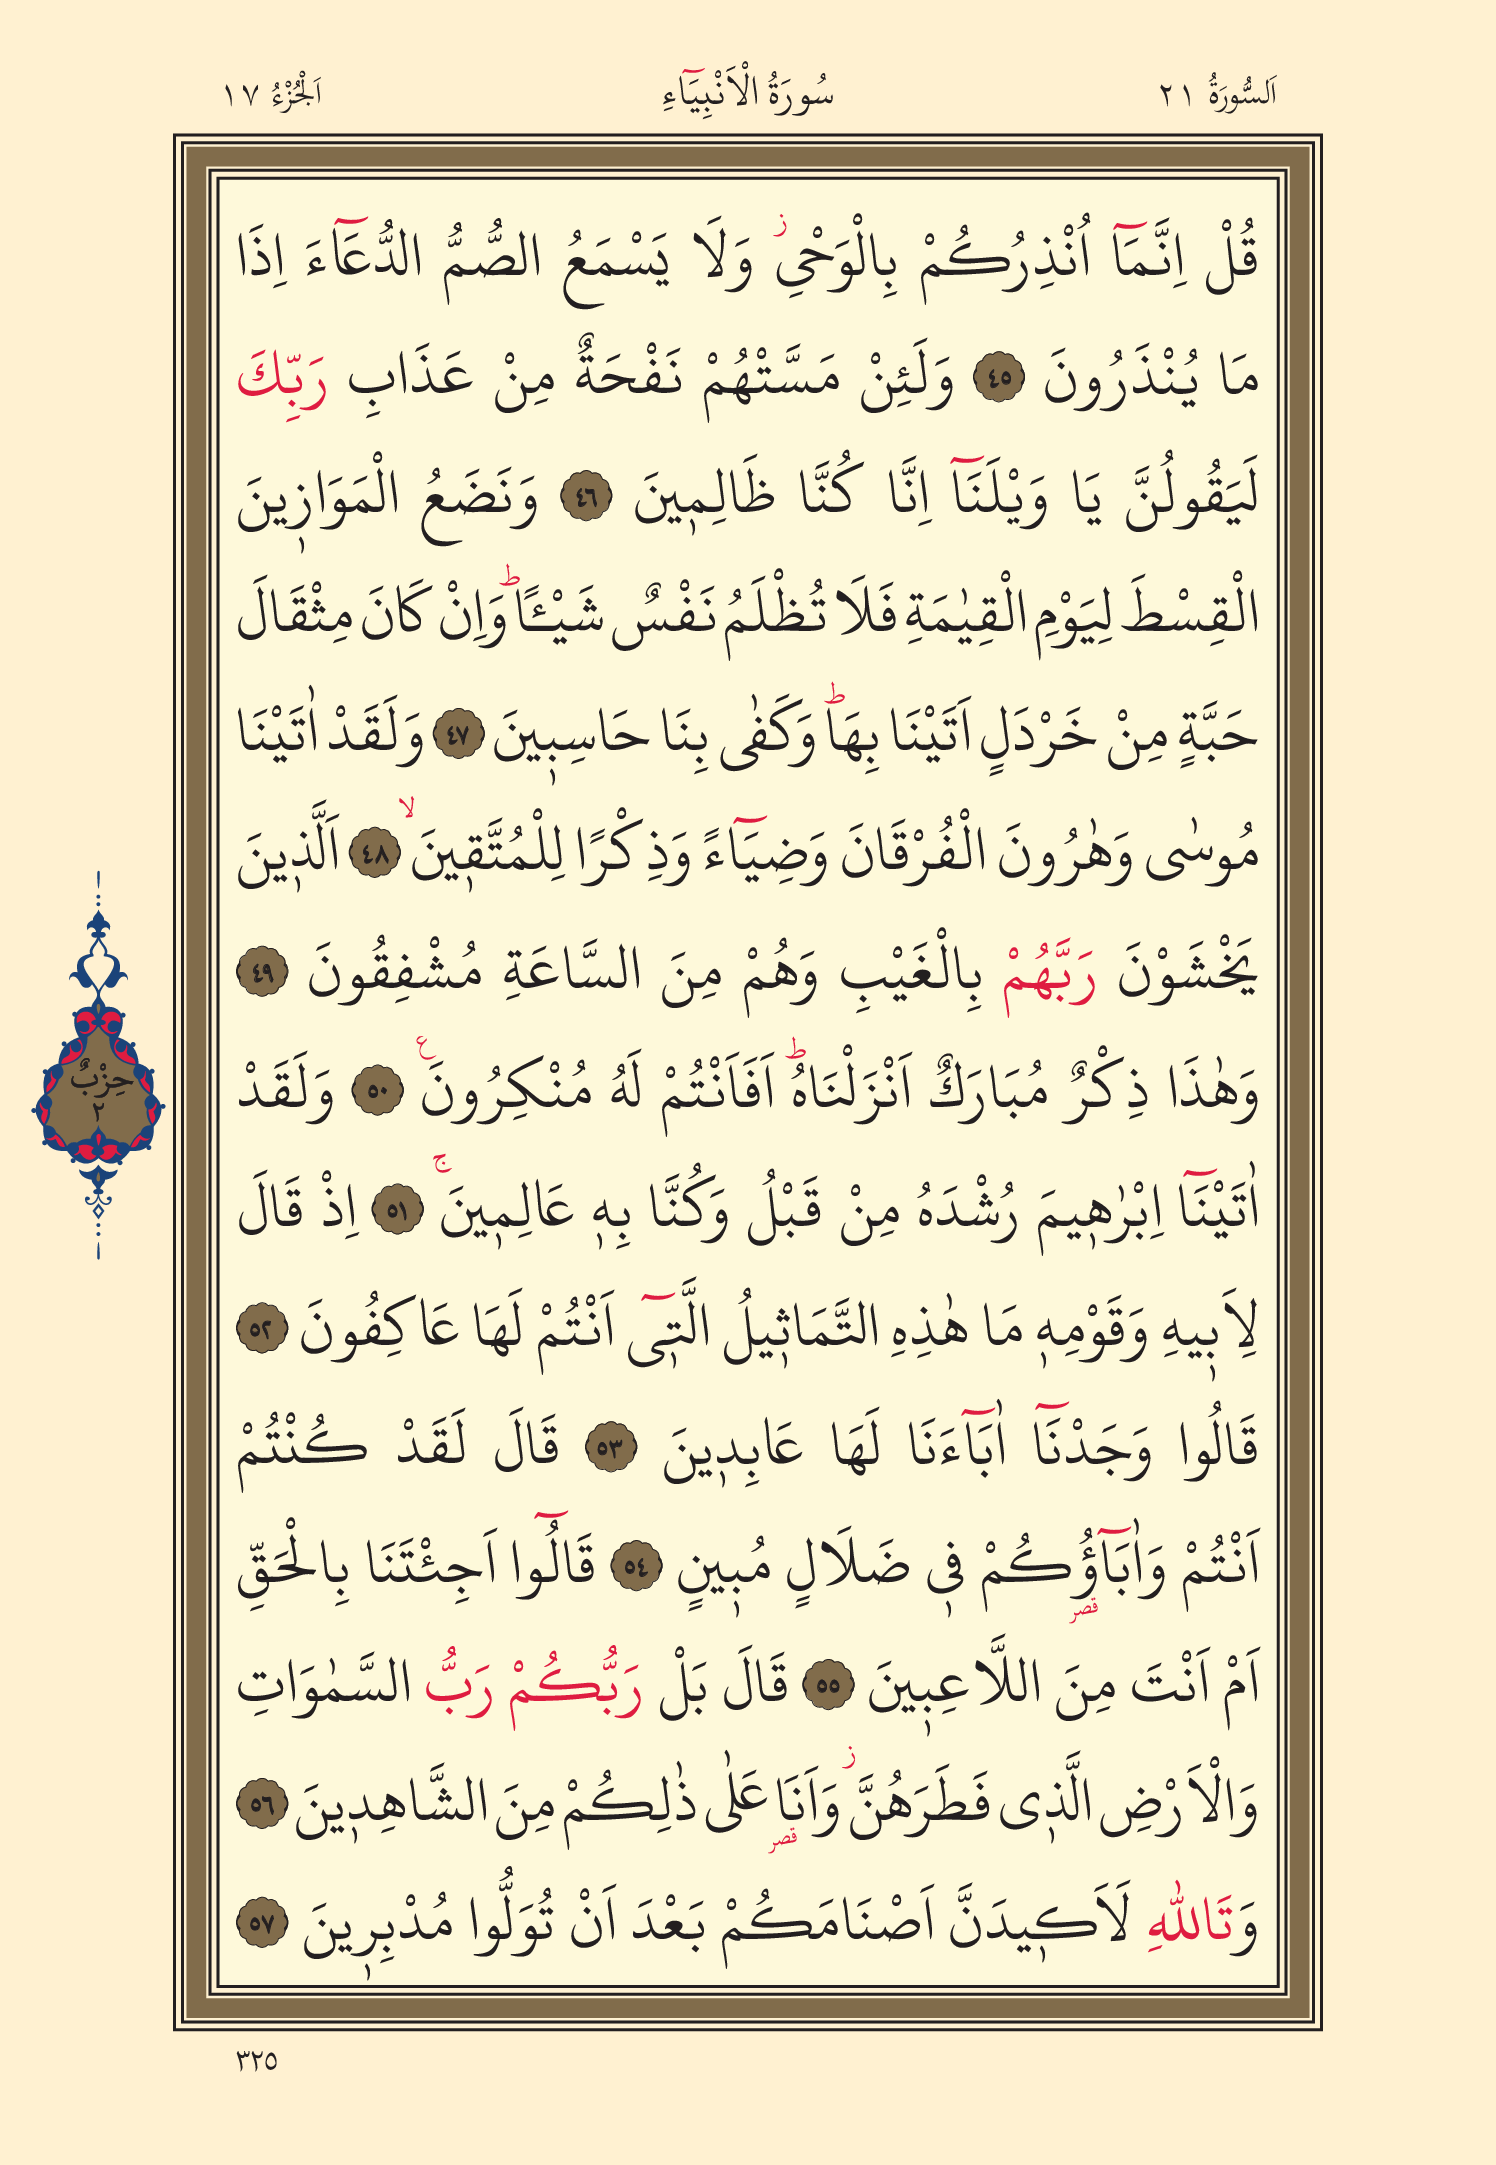 اَلسُّورَةُ ٢١
سُورَةُ الْاَنْبِيَٓاءِ
اَلْجُزْءُ ١٧
قُلْ اِنَّمَٓا اُنْذِرُكُمْ بِالْوَحْيِ ز وَلَا يَسْمَعُ الصُّمُّ الدُّعَٓاءَ اِذَا
مَا يُنْذَرُونَ ٤٥ وَلَئِنْ مَسَّتْهُمْ نَفْحَةٌ مِنْ عَذَابِ رَبِّكَ
لَيَقُولُنَّ يَا وَيْلَنَٓا اِنَّا كُنَّا ظَالِم۪ينَ ٤٦ وَنَضَعُ الْمَوَاز۪ينَ
الْقِسْطَ لِيَوْمِ الْقِيٰمَةِ فَلَا تُظْلَمُ نَفْسٌ شَيْـًٔا ط وَاِنْ كَانَ مِثْقَالَ
حَبَّةٍ مِنْ خَرْدَلٍ اَتَيْنَا بِهَا ط وَكَفٰى بِنَا حَاسِب۪ينَ ٤٧ وَلَقَدْ اٰتَيْنَا
مُوسٰى وَهٰرُونَ الْفُرْقَانَ وَضِيَٓاءً وَذِكْرًا لِلْمُتَّق۪ينَ لا ٤٨ اَلَّذ۪ينَ
يَخْشَوْنَ رَبَّهُمْ بِالْغَيْبِ وَهُمْ مِنَ السَّاعَةِ مُشْفِقُونَ ٤٩
وَهٰذَا ذِكْرٌ مُبَارَكٌ اَنْزَلْنَاهُ ط اَفَاَنْتُمْ لَهُ مُنْكِرُونَ ع ٥٠ وَلَقَدْ
اٰتَيْنَٓا اِبْرٰه۪يمَ رُشْدَهُ مِنْ قَبْلُ وَكُنَّا بِه۪ عَالِم۪ينَ ج ٥١ اِذْ قَالَ
لِاَب۪يهِ وَقَوْمِه۪ مَا هٰذِهِ التَّمَاث۪يلُ الَّت۪ٓى اَنْتُمْ لَهَا عَاكِفُونَ ٥٢
قَالُوا وَجَدْنَٓا اٰبَٓاءَنَا لَهَا عَابِد۪ينَ ٥٣ قَالَ لَقَدْ كُنْتُمْ
اَنْتُمْ وَاٰبَٓاؤُكُمْ ف۪ى ضَلَالٍ مُب۪ينٍ ٥٤ قَالُٓوا اَجِئْتَنَا بِالْحَقِّ
قصر
اَمْ اَنْتَ مِنَ اللَّاعِب۪ينَ ٥٥ قَالَ بَلْ رَبُّكُمْ رَبُّ السَّمٰوَاتِ
وَالْاَرْضِ الَّذ۪ى فَطَرَهُنَّ ز وَاَنَا عَلٰى ذٰلِكُمْ مِنَ الشَّاهِد۪ينَ ٥٦
قصر
وَتَاللّٰهِ لَاَك۪يدَنَّ اَصْنَامَكُمْ بَعْدَ اَنْ تُوَلُّوا مُدْبِر۪ينَ ٥٧
حِزْبٌ
٢
٣٢٥